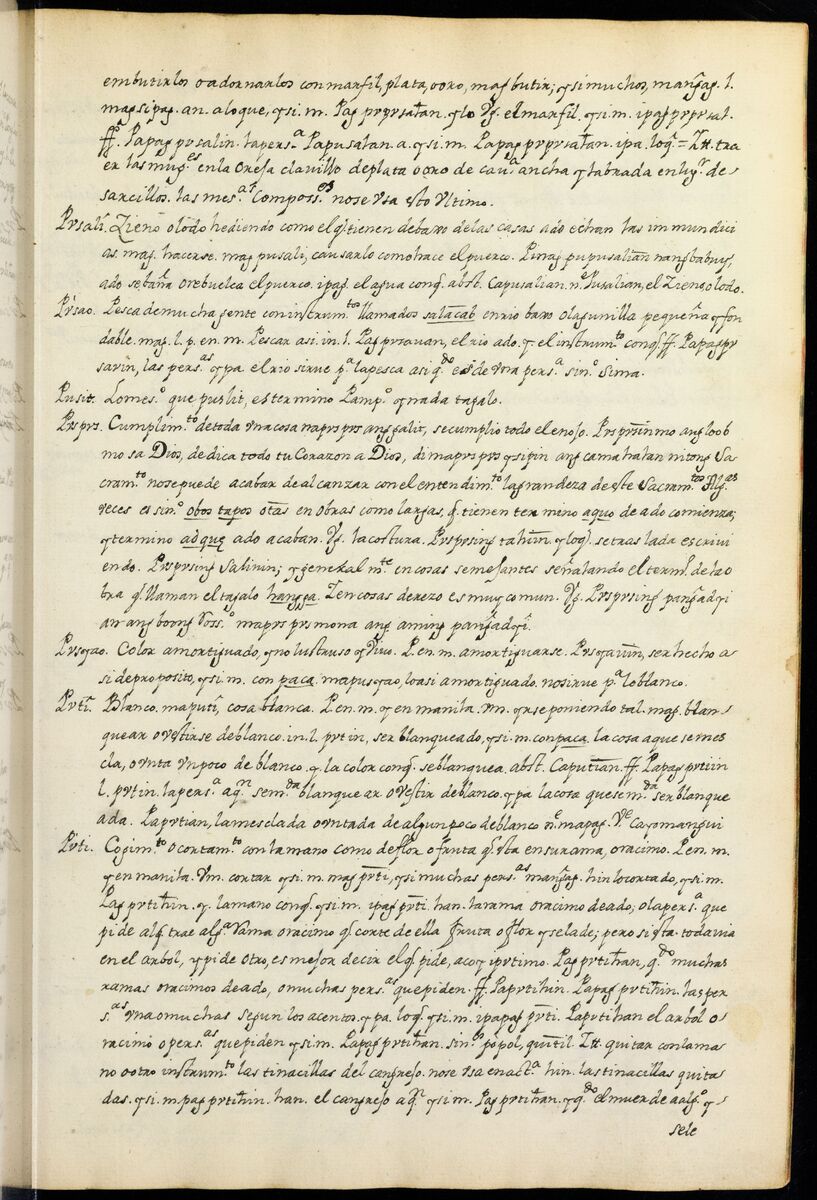 embutirlos o adornarlos con marfil, plata, o oro, mag butir; y si muchos, mang̃ag. l.
mag si pag. an. a lo que, y si. m. Pag prprsatan. y lo Vg. el marfil. y si. m. ipag prprsat.
ff. Papag prsalin. la pers.ª Papusatan. a. y si. m. Papag prprsatan. ipa. loq.ᵉ = It. tra
er las mug.ᵉˢ en la oreja clavillo de plata o oro de cau.ª ancha y labrada en lug.ʳ de
sarcillos. las mes.ᵃˢ composs.ᵉˢ no se vsa esto vltimo.
Prsali. Zieno o lodo hediendo como el q̃ tienen debaxo de las casas ado echan las inmundici
as. mag. hacerse. mag pusali, causarlo como hace el puerco. Pinag pupusalian nang babuy,
ado se baña o rebuelca el puerco. ipag. el agua conq. abst. Capusalian. n.ᵉ Pusalian, el Zieno, o lodo.
Prsao. Pesca de mucha gente con instrum.ᵗᵒˢ llamados salacab en rio baxo o lagunilla pequeña y fon
dable. mag. l. p. en. m. Pescar asi. in. l. Pag prsauan, el rio ado. y el instrum.ᵗᵒ conq. ff. Papag pr
savin, las pers.ᵃˢ y pa el rio sirve p.ª la pesca asi q.ᵈᵒ es de vna pers.ª sin.ᵒ sima.
Pusit. Lo mes.ᵒ que puslit, es termino Pamp.ᵒ y nada tagalo.
Prsprs. Cumplim.ᵗᵒ de toda vna cosa naprsprs ang galit, se cumplio todo el enojo. Prsprsin mo ang loob
mo sa Dios, dedica todo tu Corazon a Dios, di maprsprs ysipin ang camahalan nitong Sa
cram.ᵗᵒ no se puede acabar de alcanzar con el entendim.ᵗᵒ la grandeza de este Sacram.ᵗᵒ Alg.ᵃˢ
veces es sin.ᵒ obos tapos otas en obras como largas, q. tienen termino aquo de ado comienza;
y termino ad quę ado acaban. Vg. la costura. Prsprsing tahiin y loq. se traslada escrivi
endo. Prsprsing Salinin; y general m.ᵗᵉ en cosas semejantes señalando el term.ᵒ de la o
tra q. llaman el tagalo hangga. I en cosas de rezo es muy comun. Vg. Prsprsing pang̃adyi
an ang boong Ross.ᵒ maprsprs mona ang aming pang̃adyi.
Prsyao. Color amortiguado, y no lustruso y vivo. P. en. m. amortiguarse. Prsyauin, ser hecho a
si de proposito, y si. m. con paca. mapusyao, lo asi amortiguado. no sirve p.ª lo blanco.
Prti. Blanco. maputi, cosa blanca. P. en. m. y en manila. vm. yrse poniendo tal. mag. blan
quear o vestirse de blanco. in. l. prtin, ser blanqueado, y si. m. con paca. la cosa a que se mes
cla, o vnta vn poco de blanco. y la color conq. se blanquea. abst. Caputian. ff. Papag prtiin
l. prtin. la pers.ª a q.ⁿ se m.ᵈᵃ blanquear o vestir de blanco. y pa la cosa que se m.ᵈᵃ ser blanque
ada. Paprtian, la mesclada o vntada de algun poco de blanco n.ᵉ mapag. V.ᵉ Cayomangui
Prti. Cogim.ᵗᵒ o cortam.ᵗᵒ con la mano como de flor, o fruta q. esta en su rama, o racimo. P. en. m.
y en manila. Vm. cortar y si. m. mag prti, y si muchas pers.ᵃˢ mang̃ag. hin lo cortado, y si. m.
Pag prtihin. y. la mano conq. y si. m. ipag prti. han. la rama o racimo de ado; o la pers.ª que
pide a lq. trae alg.ª rama o racimo q. corte de ella fruta o flor y se la de; pero si esta todavia
en el arbol, y pide otro, es mejor decir el q. pide, aco y iprtimo. Pag prtihan, q.ᵈᵒ muchas
ramas o racimos de ado, o muchas pers.ᵃˢ que piden. ff. Paprtihin. Papag prtihin. las per
s.ᵃˢ vna o muchas segun los acentos. y pa. loq. y si. m. ipapag prti. Paprtihan el arbol o
racimo o pers.ᵃˢ que piden y si. m. Papag prtihan. sin.ᵒˢ popol, quitil It. quitar con la ma
no o otro instrum.ᵗᵒ las tinacillas del cangrejo. no se vsa en act.ª hin. las tinacillas quita
das. y si. m. pag prtihin. han. el cangrejo a q.ⁿ y si. m. Pag prtihan. y q.ᵈᵒ el muerde a alg.ᵒ y
sele